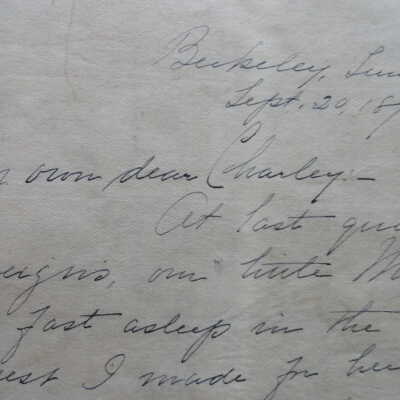 Berkeley, Sun
Sept. 20, 18
own dear Charley:-
At last qu
eigns, our little M
fast asleep in the
est I made for he